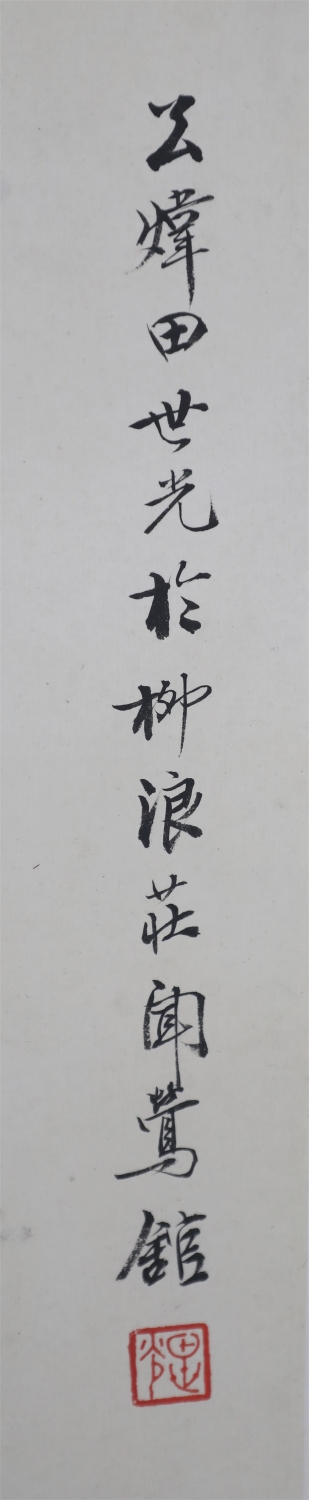 公煒田世光於柳浪莊聞鶯館